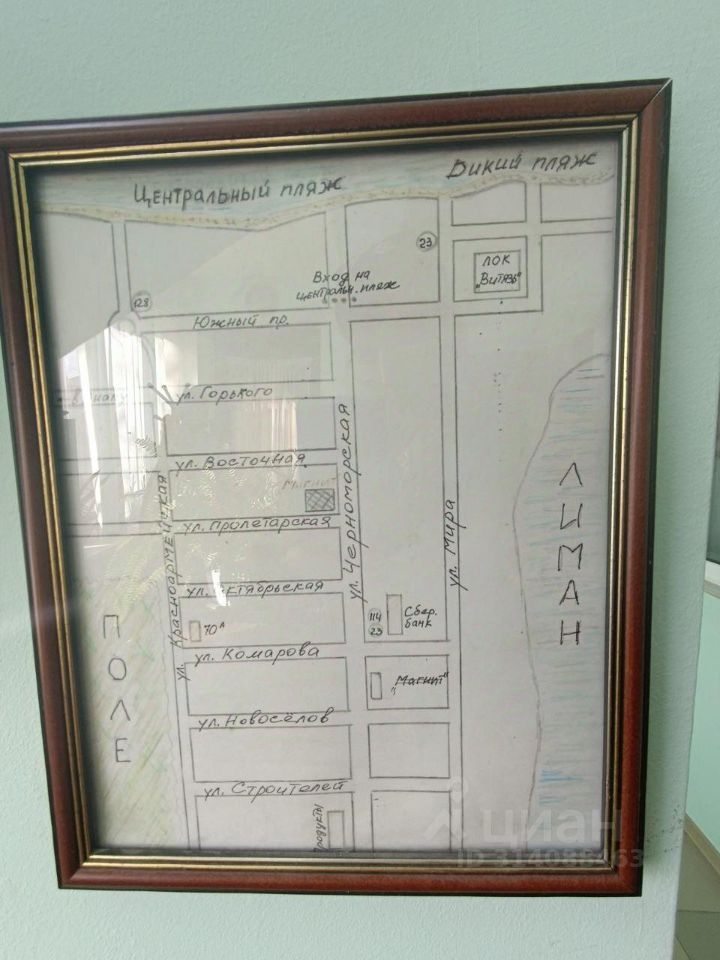 Центральный пляж
Дикий пляж
23
ЛОК
"Витязь"
Вход на
центральн. пляж
128
Южный пр.
ул. Горького
ул. Восточная
Магнит
ул. Пролетарская
ул. Красноармейская
ул. Черноморская
ул. Мира
ЛИМАН
ул. Октябрьская
70А
114
23
Сбер.
банк
ул. Комарова
"Магнит"
ПОЛЕ
ул. Новосёлов
ул. Строителей
Продукты
циан
ID 314088463